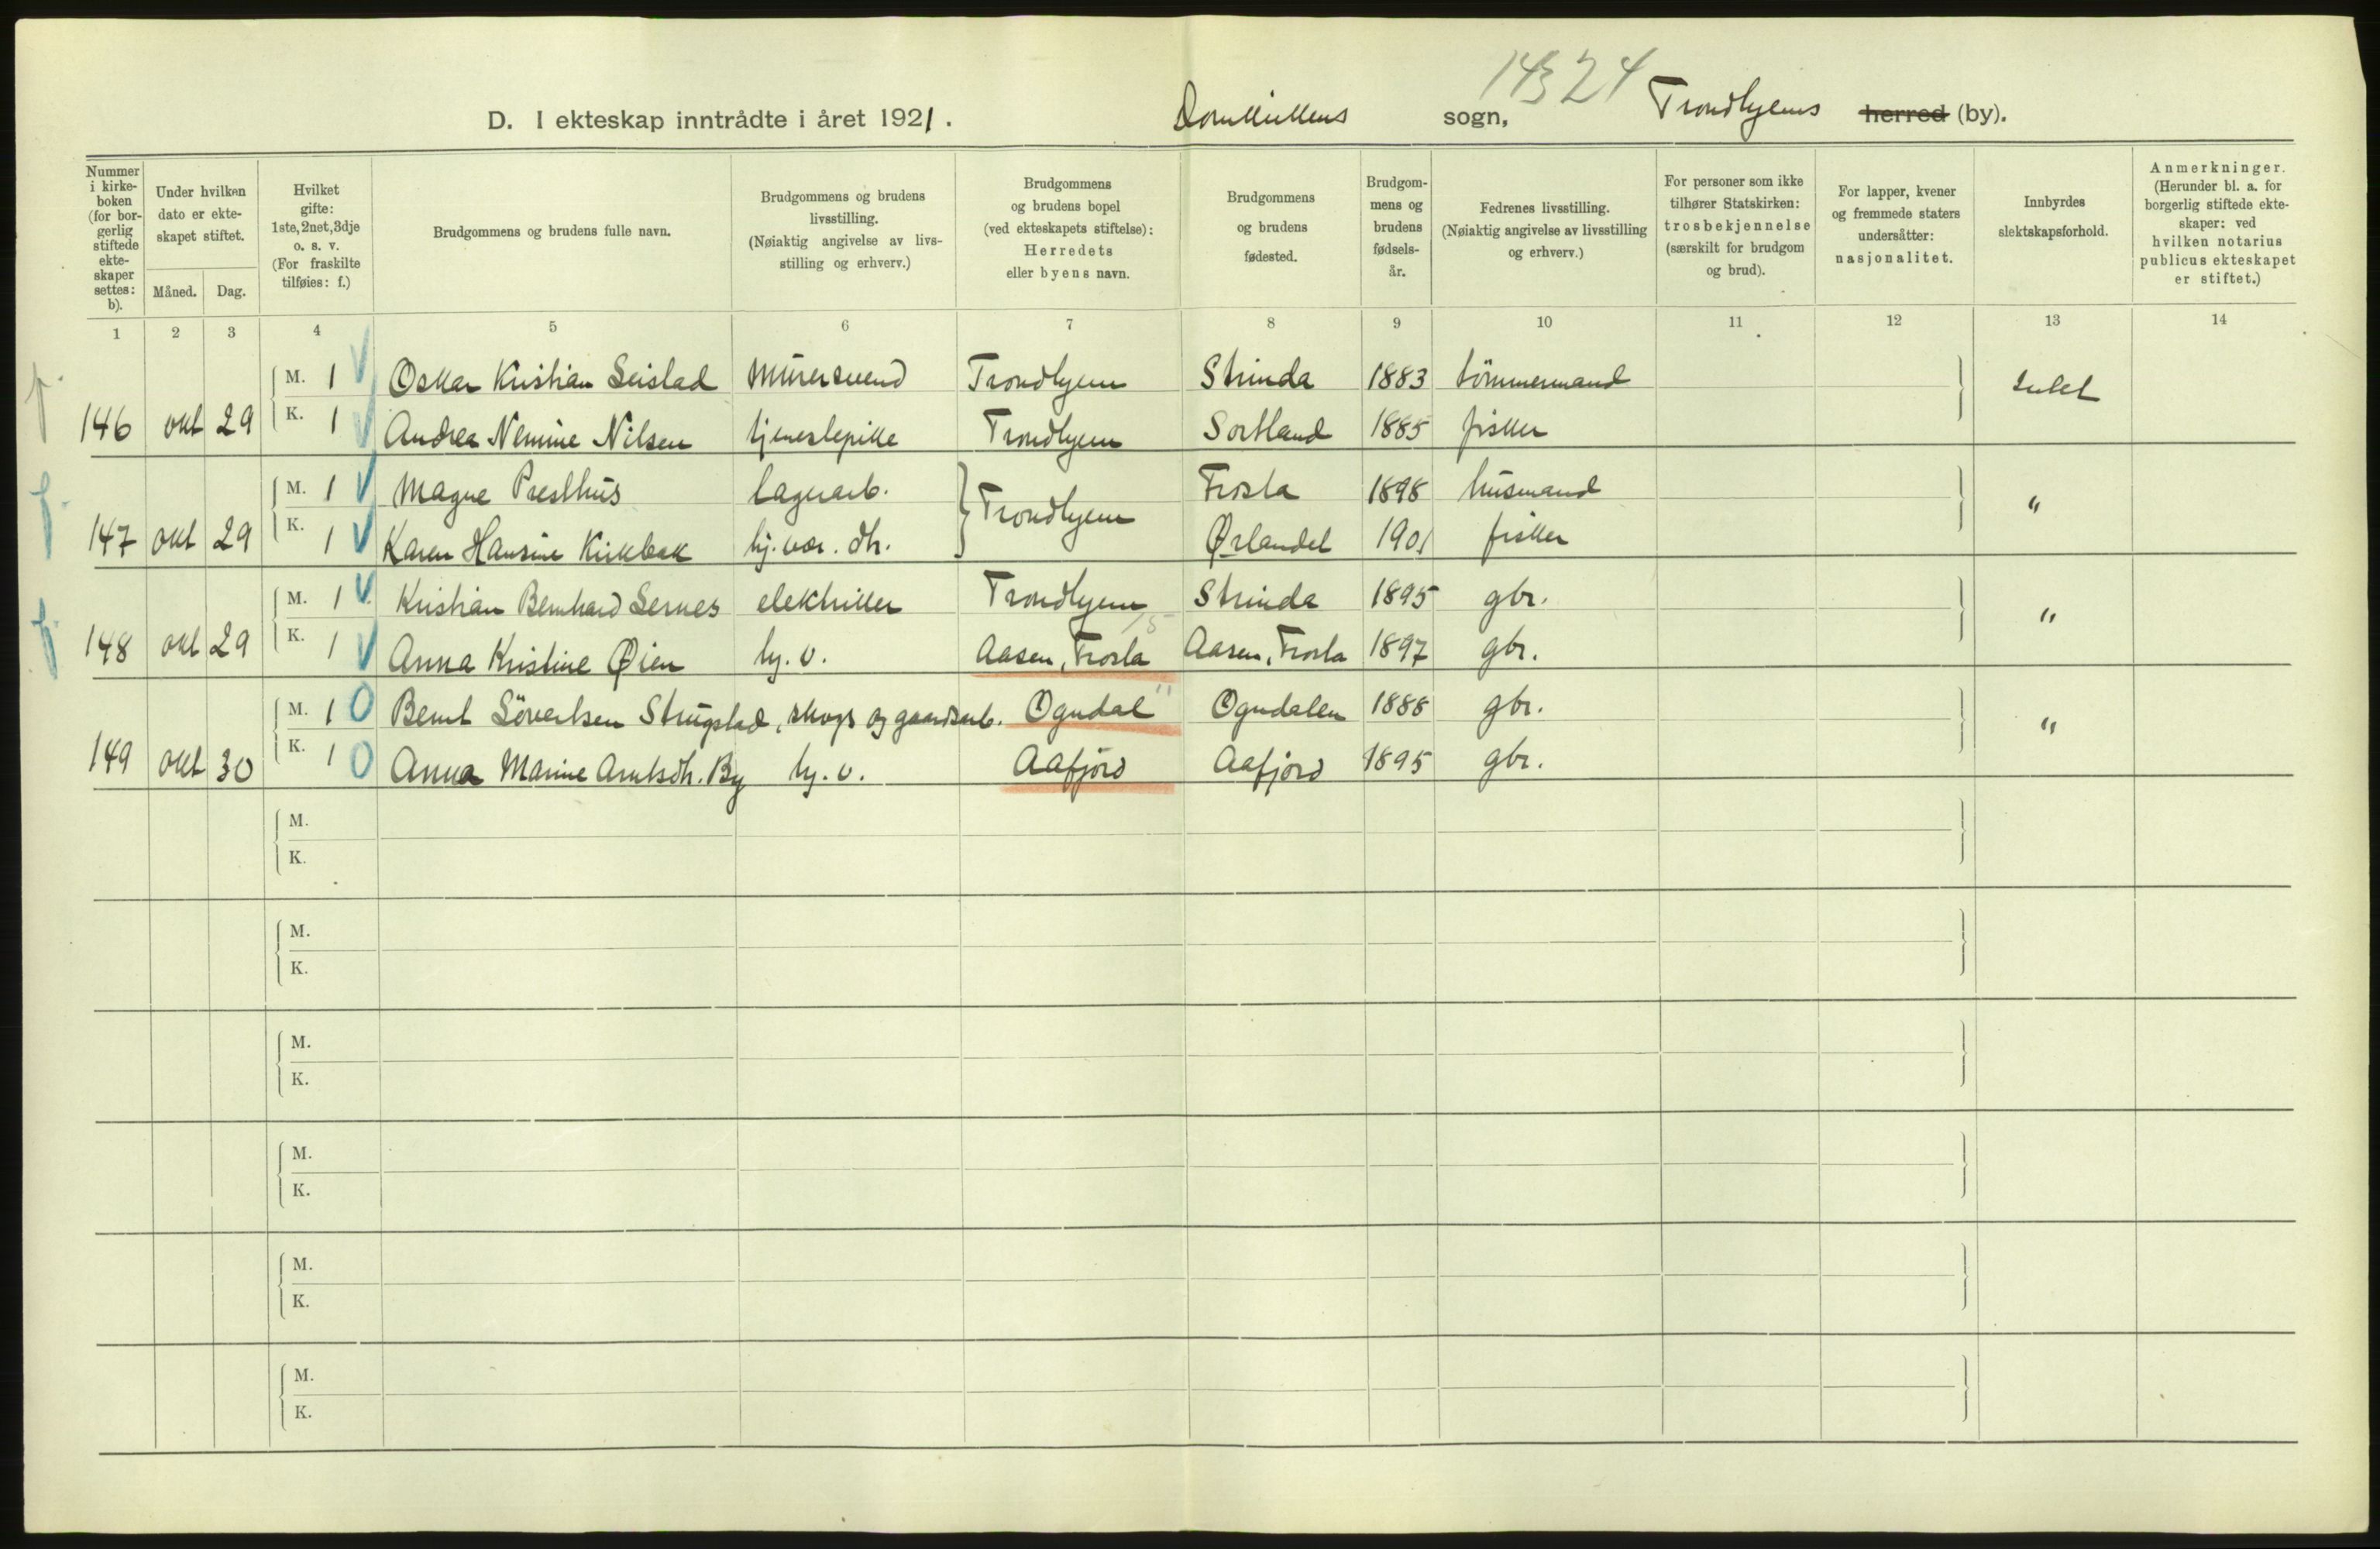 14324
D. I ekteskap inntrådte i året 1921. Domkirkens sogn, Trondhjems herred (by).
Nummer i kirke-boken (for bor-gerlig stiftede ekte-skaper settes: b).
Under hvilken dato er ekte-skapet stiftet.
Måned. Dag.
Hvilket gifte: 1ste, 2net, 3dje o. s. v. (For fraskilte tilføies: f.)
Brudgommens og brudens fulle navn.
Brudgommens og brudens livsstilling. (Nøiaktig angivelse av livs-stilling og erhverv.)
Brudgommens og brudens bopel (ved ekteskapets stiftelse): Herredets eller byens navn.
Brudgommens og brudens fødested.
Brudgom-mens og brudens fødsels-år.
Fedrenes livsstilling. (Nøiaktig angivelse av livsstilling og erhverv.)
For personer som ikke tilhører Statskirken: trosbekjennelse (særskilt for brudgom og brud).
For lapper, kvener og fremmede staters undersåtter: nasjonalitet.
Innbyrdes slektskapsforhold.
Anmerkninger. (Herunder bl. a. for borgerlig stiftede ekte-skaper: ved hvilken notarius publicus ekteskapet er stiftet.)
1 2 3 4 5 6 7 8 9 10 11 12 13 14
M. 1 Oskar Kristian Seistad murersvend Trondhjem Strinda 1883 tömmermand intet
146 okt 29 K. 1 Andrea Nemine Nilsen tjenestepike Trondhjem Sortland 1885 fisker
M. 1 Magne Presthus lagerarb. Trondhjem Frosta 1898 husmand "
147 okt 29 K. 1 Karen Hansine Kirkbak hj. vær. dtr. Ørlandet 1901 fisker
M. 1 Kristian Bernhard Sernes elektriker Trondhjem Strinda 1895 gbr. "
148 okt 29 K. 1 Anna Kristine Øien hj. v. Aasen, Frosta Aasen, Frosta 1897 gbr.
M. 1 Bernt Sövertsen Strugstad, skogs og gaardsarb. Ogndal Ogndalen 1888 gbr. "
149 okt 30 K. 1 Anna Marine Arntsdtr. By hj. v. Aafjord Aafjord 1895 gbr.
M.
K.
M.
K.
M.
K.
M.
K.
M.
K.
M.
K.